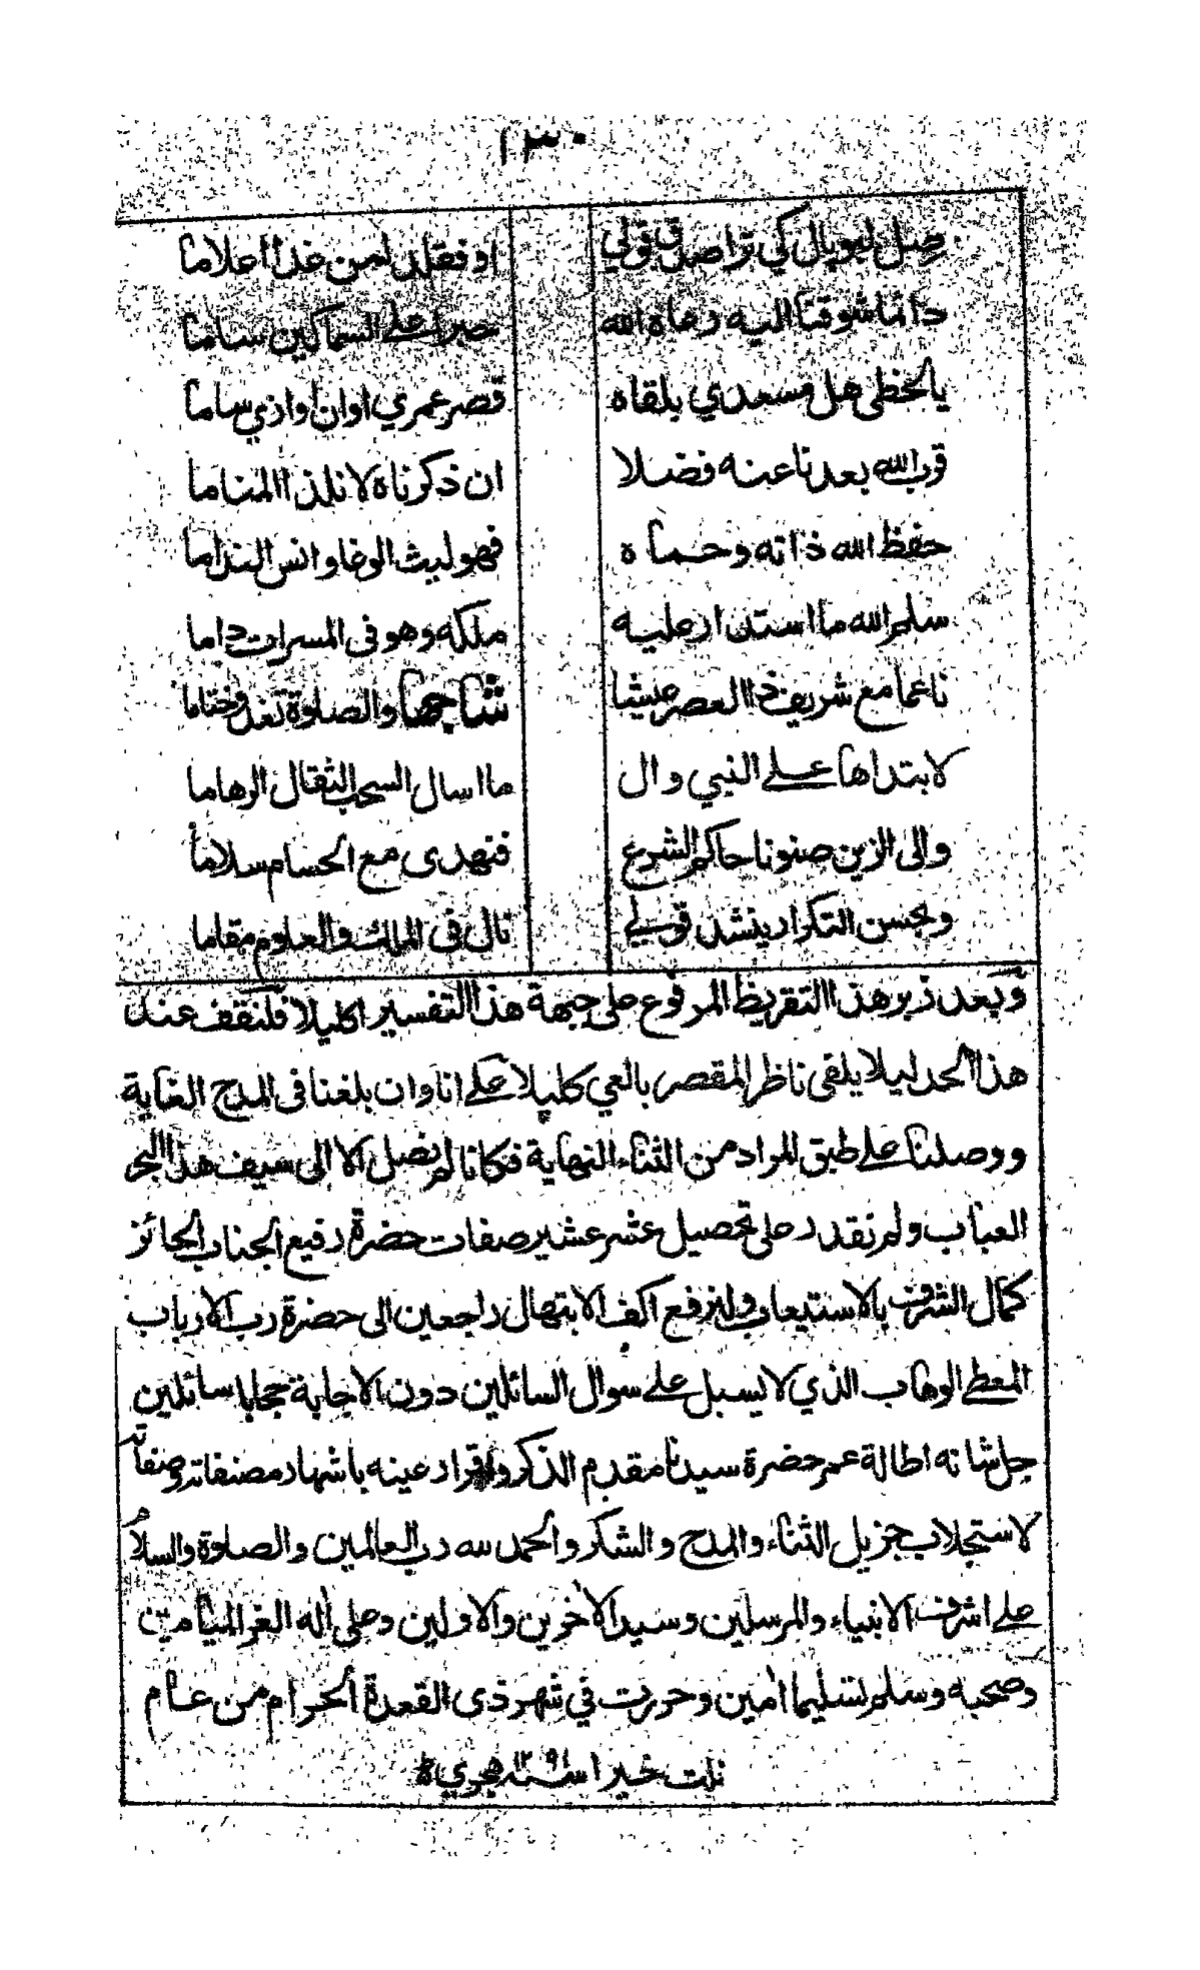 ١٣٠
صل لبوبال كي تراصدق قولي اوفقلد لمن غدا اعلاما
دائما شوقنا اليه رعاه الله على السماكين ساما
يالحظي هل مسعدي بلقاه قصر عمري اوان اواذي ساما
قرب الله بعدنا عنه فضلا ان ذكرناه لا نلذ المناما
حفظ الله ذاته وحماه فهو ليث الوغا وانس الندلما
سلم الله ما استدار عليه ملكه وهو في المسرات داما
ناعما مع شريف ذا العصر عيشا شاجها والصلوة تغدو ختاما
لابتداها على النبي وال ما اسال السحب الثقال الرهاما
والى الزين صنونا حاكم الشرع فنهدى مع الحسام سلاما
وبحسن التكرار ينشد قولي نال في الملك والعلوم مقاما
وبعد زبر هذا التقريظ المرفوع على جبهة هذا التفسير اكليلا فلنقف عند
هذا الحد ليلا يلقى ناظر المقصر بالعي كليلا على انا وان بلغنا في المدح الغاية
ووصلنا على طبق المراد من الثناء النهاية فكانا لم نصل الا الى سيف هذا البحر
العباب ولم نقدر على تحصيل عشر عشير صفات حضرة رفيع الجناب الحائز
كمال الشرف بالاستيعاب ولنرفع اكف الابتهال راجعين الى حضرة رب الارباب
المعطي الوهاب الذي لا يسبل على سوال السائلين دون الاجابة حجابا سائلين
جل شانه اطالة عمر حضرة سيدنا مقدم الذكر واقرار عينه باشهار مصنفاته وصفاته
لاستجلاب جزيل الثناء والمدح والشكر والحمد لله رب العالمين والصلوة والسلام
على اشرف الانبياء والمرسلين وسيد الاخرين والاولين وعلى اله الغر الميامين
وصحبه وسلم تسليما امين وحررت في شهر ذي القعدة الحرام من عام
نلت خيرا سنة ١٢٩١ هجرية